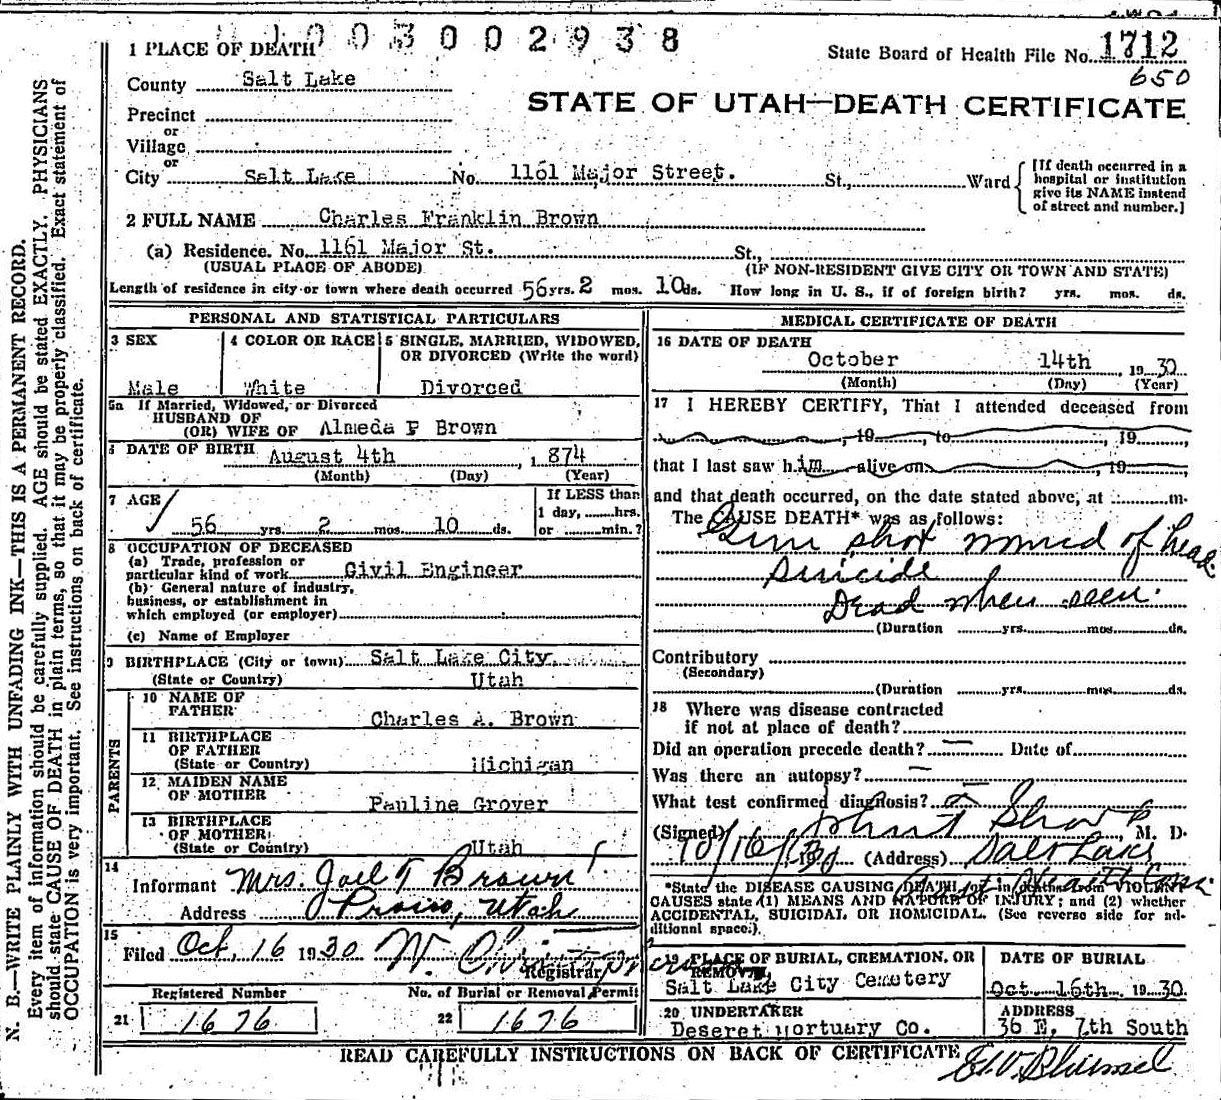 1003002938
1 PLACE OF DEATH
State Board of Health File No. 1712
650
County Salt Lake
STATE OF UTAH—DEATH CERTIFICATE
Precinct
or
Village
or
City Salt Lake No. 1161 Major Street. St., Ward
[If death occurred in a
hospital or institution
give its NAME instead
of street and number.]
2 FULL NAME Charles Franklin Brown
(a) Residence. No. 1161 Major St. St.,
(USUAL PLACE OF ABODE) (IF NON-RESIDENT GIVE CITY OR TOWN AND STATE)
Length of residence in city or town where death occurred 56 yrs. 2 mos. 10 ds. How long in U. S., if of foreign birth? yrs. mos. ds.
PERSONAL AND STATISTICAL PARTICULARS
3 SEX
Male
4 COLOR OR RACE
White
5 SINGLE, MARRIED, WIDOWED,
OR DIVORCED (Write the word)
Divorced
5a If Married, Widowed, or Divorced
HUSBAND OF
(OR) WIFE OF Almeda F Brown
6 DATE OF BIRTH August 4th, 1874
(Month) (Day) (Year)
7 AGE
56 yrs. 2 mos. 10 ds.
If LESS than
1 day, hrs.
or min.?
8 OCCUPATION OF DECEASED
(a) Trade, profession or
particular kind of work Civil Engineer
(b) General nature of industry,
business, or establishment in
which employed (or employer)
(c) Name of Employer
9 BIRTHPLACE (City or town) Salt Lake City.
(State or Country) Utah
PARENTS
10 NAME OF
FATHER Charles A. Brown
11 BIRTHPLACE
OF FATHER
(State or Country) Michigan
12 MAIDEN NAME
OF MOTHER Pauline Grover
13 BIRTHPLACE
OF MOTHER
(State or Country) Utah
14
Informant Mrs. Joel T Brown
Address Provo, Utah
15
Filed Oct. 16 1930
Registrar
Registered Number
21 1676
No. of Burial or Removal Permit
22 1676
MEDICAL CERTIFICATE OF DEATH
16 DATE OF DEATH
October 14th, 1930
(Month) (Day) (Year)
17 I HEREBY CERTIFY, That I attended deceased from
, 19 , to , 19 ,
that I last saw him alive on , 19
and that death occurred, on the date stated above, at m.
The CAUSE DEATH* was as follows:
Gun shot wound of head.
Suicide
Dead when seen.
(Duration yrs. mos. ds.
Contributory
(Secondary)
(Duration yrs. mos. ds.
18 Where was disease contracted
if not at place of death?
Did an operation precede death? — Date of
Was there an autopsy? —
What test confirmed diagnosis?
(Signed) M. D.
10/16/1930 (Address) Salt Lake
*State the DISEASE CAUSING DEATH, or in deaths from VIOLENT
CAUSES state (1) MEANS AND NATURE OF INJURY; and (2) whether
ACCIDENTAL, SUICIDAL OR HOMICIDAL. (See reverse side for ad-
ditional space.)
19 PLACE OF BURIAL, CREMATION, OR
REMOVAL
Salt Lake City Cemetery
DATE OF BURIAL
Oct 16th 1930
20 UNDERTAKER
Deseret Mortuary Co.
ADDRESS
36 E. 7th South
READ CAREFULLY INSTRUCTIONS ON BACK OF CERTIFICATE
N. B.—WRITE PLAINLY WITH UNFADING INK—THIS IS A PERMANENT RECORD.
Every item of information should be carefully supplied. AGE should be stated EXACTLY. PHYSICIANS
should state CAUSE OF DEATH in plain terms, so that it may be properly classified. Exact statement of
OCCUPATION is very important. See instructions on back of certificate.